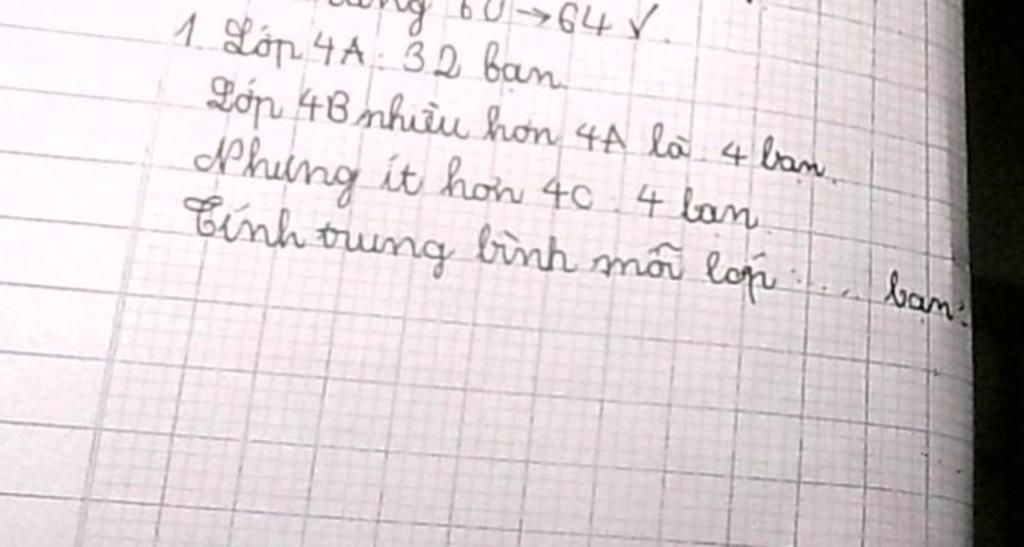 60 → 64 ✓.
1. Lớp 4A : 32 bạn.
Lớp 4B nhiều hơn 4A là 4 bạn.
Nhưng ít hơn 4C : 4 bạn.
Tính trung bình mỗi lớp : .... bạn?